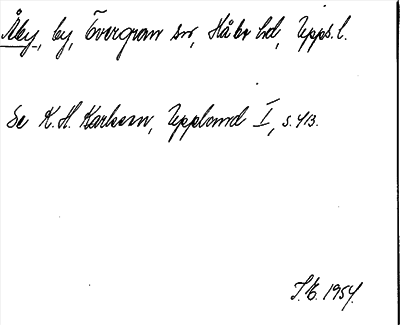 Åby, by, Övergran sn, Håbo hd, Upps. l.
Se K.H. Karlsson, Uppland I, s. 413.
S.E. 1954.